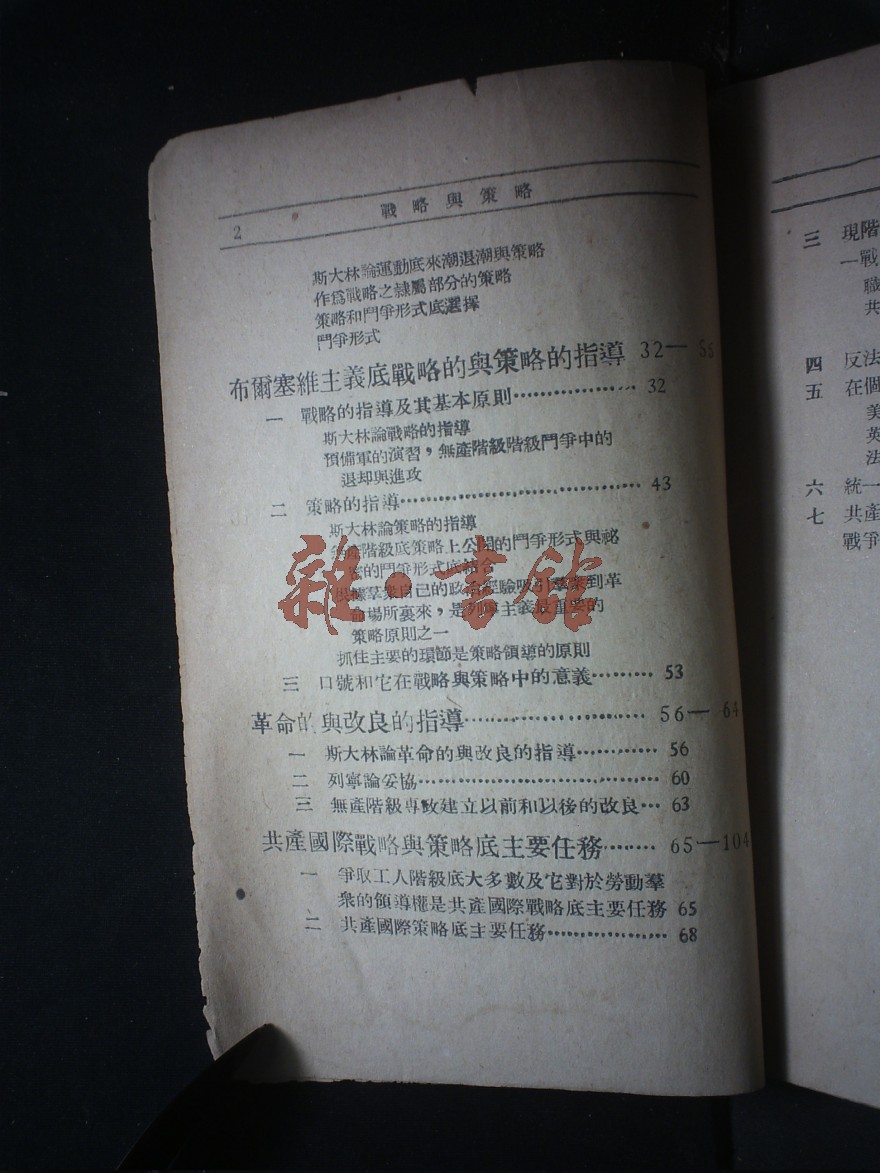 2 戰略與策略
斯大林論運動底來潮退潮與策略
作爲戰略之隸屬部分的策略
策略和鬥爭形式底選擇
鬥爭形式
布爾塞維主義底戰略的與策略的指導 32—
一 戰略的指導及其基本原則 32
斯大林論戰略的指導
預備軍的演習，無產階級階級鬥爭中的
退却與進攻
二 策略的指導 43
斯大林論策略的指導
無產階級底策略上公開的鬥爭形式與祕
密的鬥爭形式底結合
根據羣衆自己的政治經驗吸引羣衆到革
命場所裏來，是列寧主義最重要的
策略原則之一
抓住主要的環節是策略領導的原則
三 口號和它在戰略與策略中的意義 53
革命的與改良的指導 56—64
一 斯大林論革命的與改良的指導 56
二 列寧論妥協 60
三 無產階級專政建立以前和以後的改良 63
共產國際戰略與策略底主要任務 65—104
一 爭取工人階級底大多數及它對於勞動羣
衆的領導權是共產國際戰略底主要任務 65
二 共產國際策略底主要任務 68
三 現階
一戰
職
共
四 反法
五 在個
美
英
法
六 統一
七 共產
戰爭
雜·書館